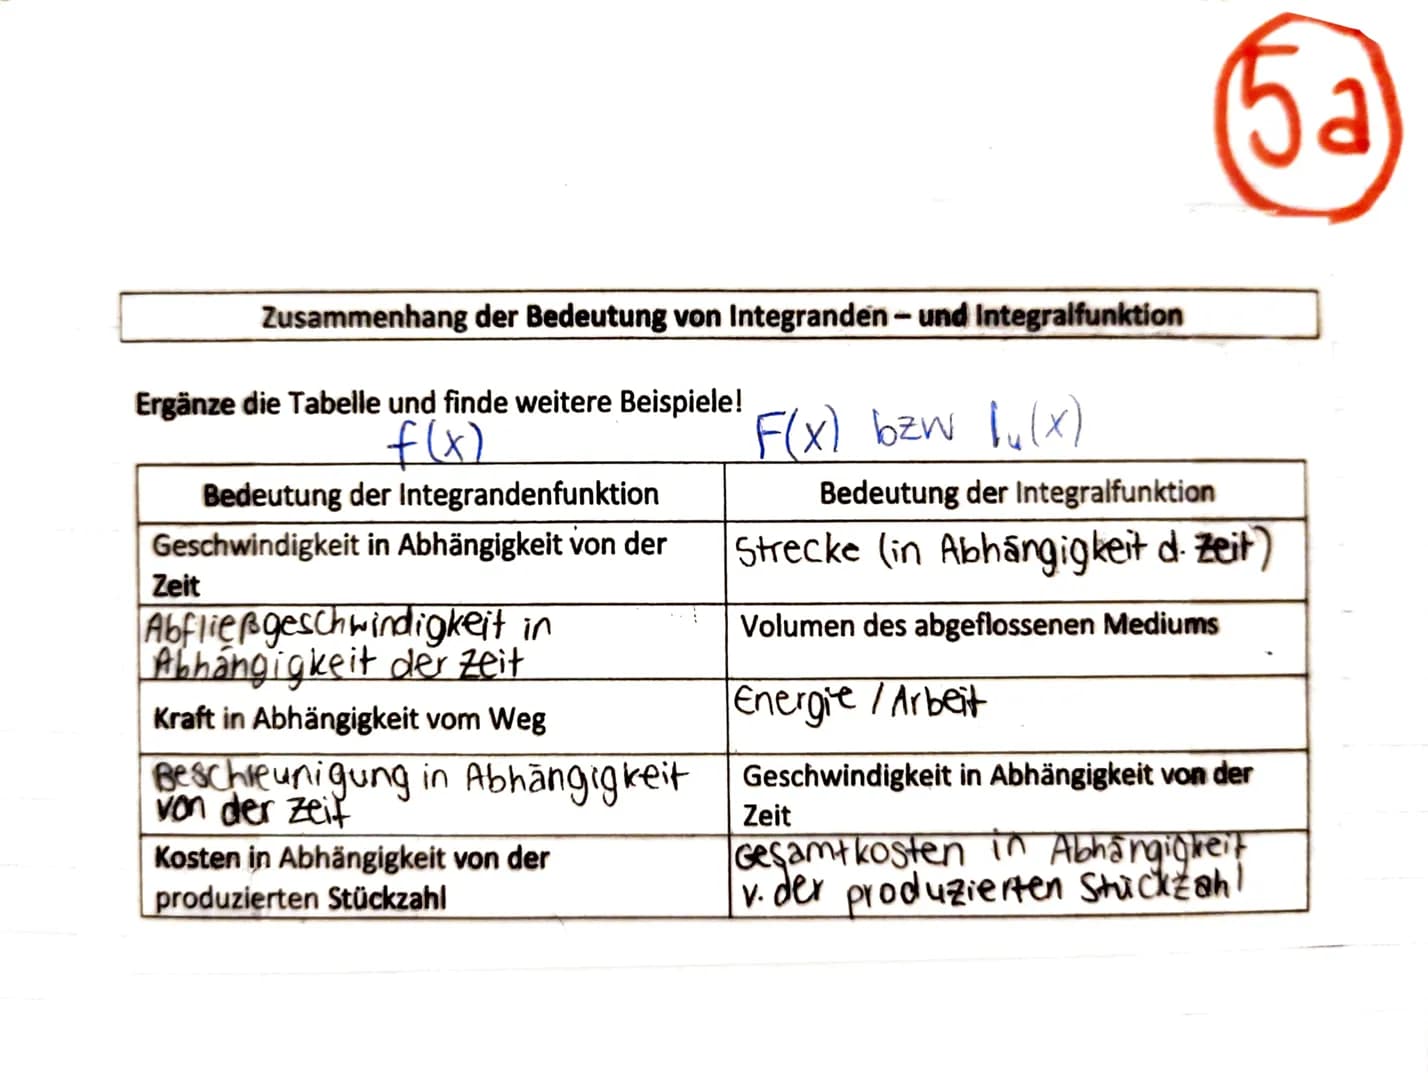 5a
Zusammenhang der Bedeutung von Integranden – und Integralfunktion
Ergänze die Tabelle und finde weitere Beispiele!
f(x)
F(x) bzw Iu(x)
Bedeutung der Integrandenfunktion
Bedeutung der Integralfunktion
Geschwindigkeit in Abhängigkeit von der
Zeit
Strecke (in Abhängigkeit d. Zeit)
Abfließgeschwindigkeit in
Abhängigkeit der Zeit
Volumen des abgeflossenen Mediums
Kraft in Abhängigkeit vom Weg
Energie / Arbeit
Beschleunigung in Abhängigkeit
von der Zeit
Geschwindigkeit in Abhängigkeit von der
Zeit
Kosten in Abhängigkeit von der
produzierten Stückzahl
Gesamtkosten in Abhängigkeit
v. der produzierten Stückzahl